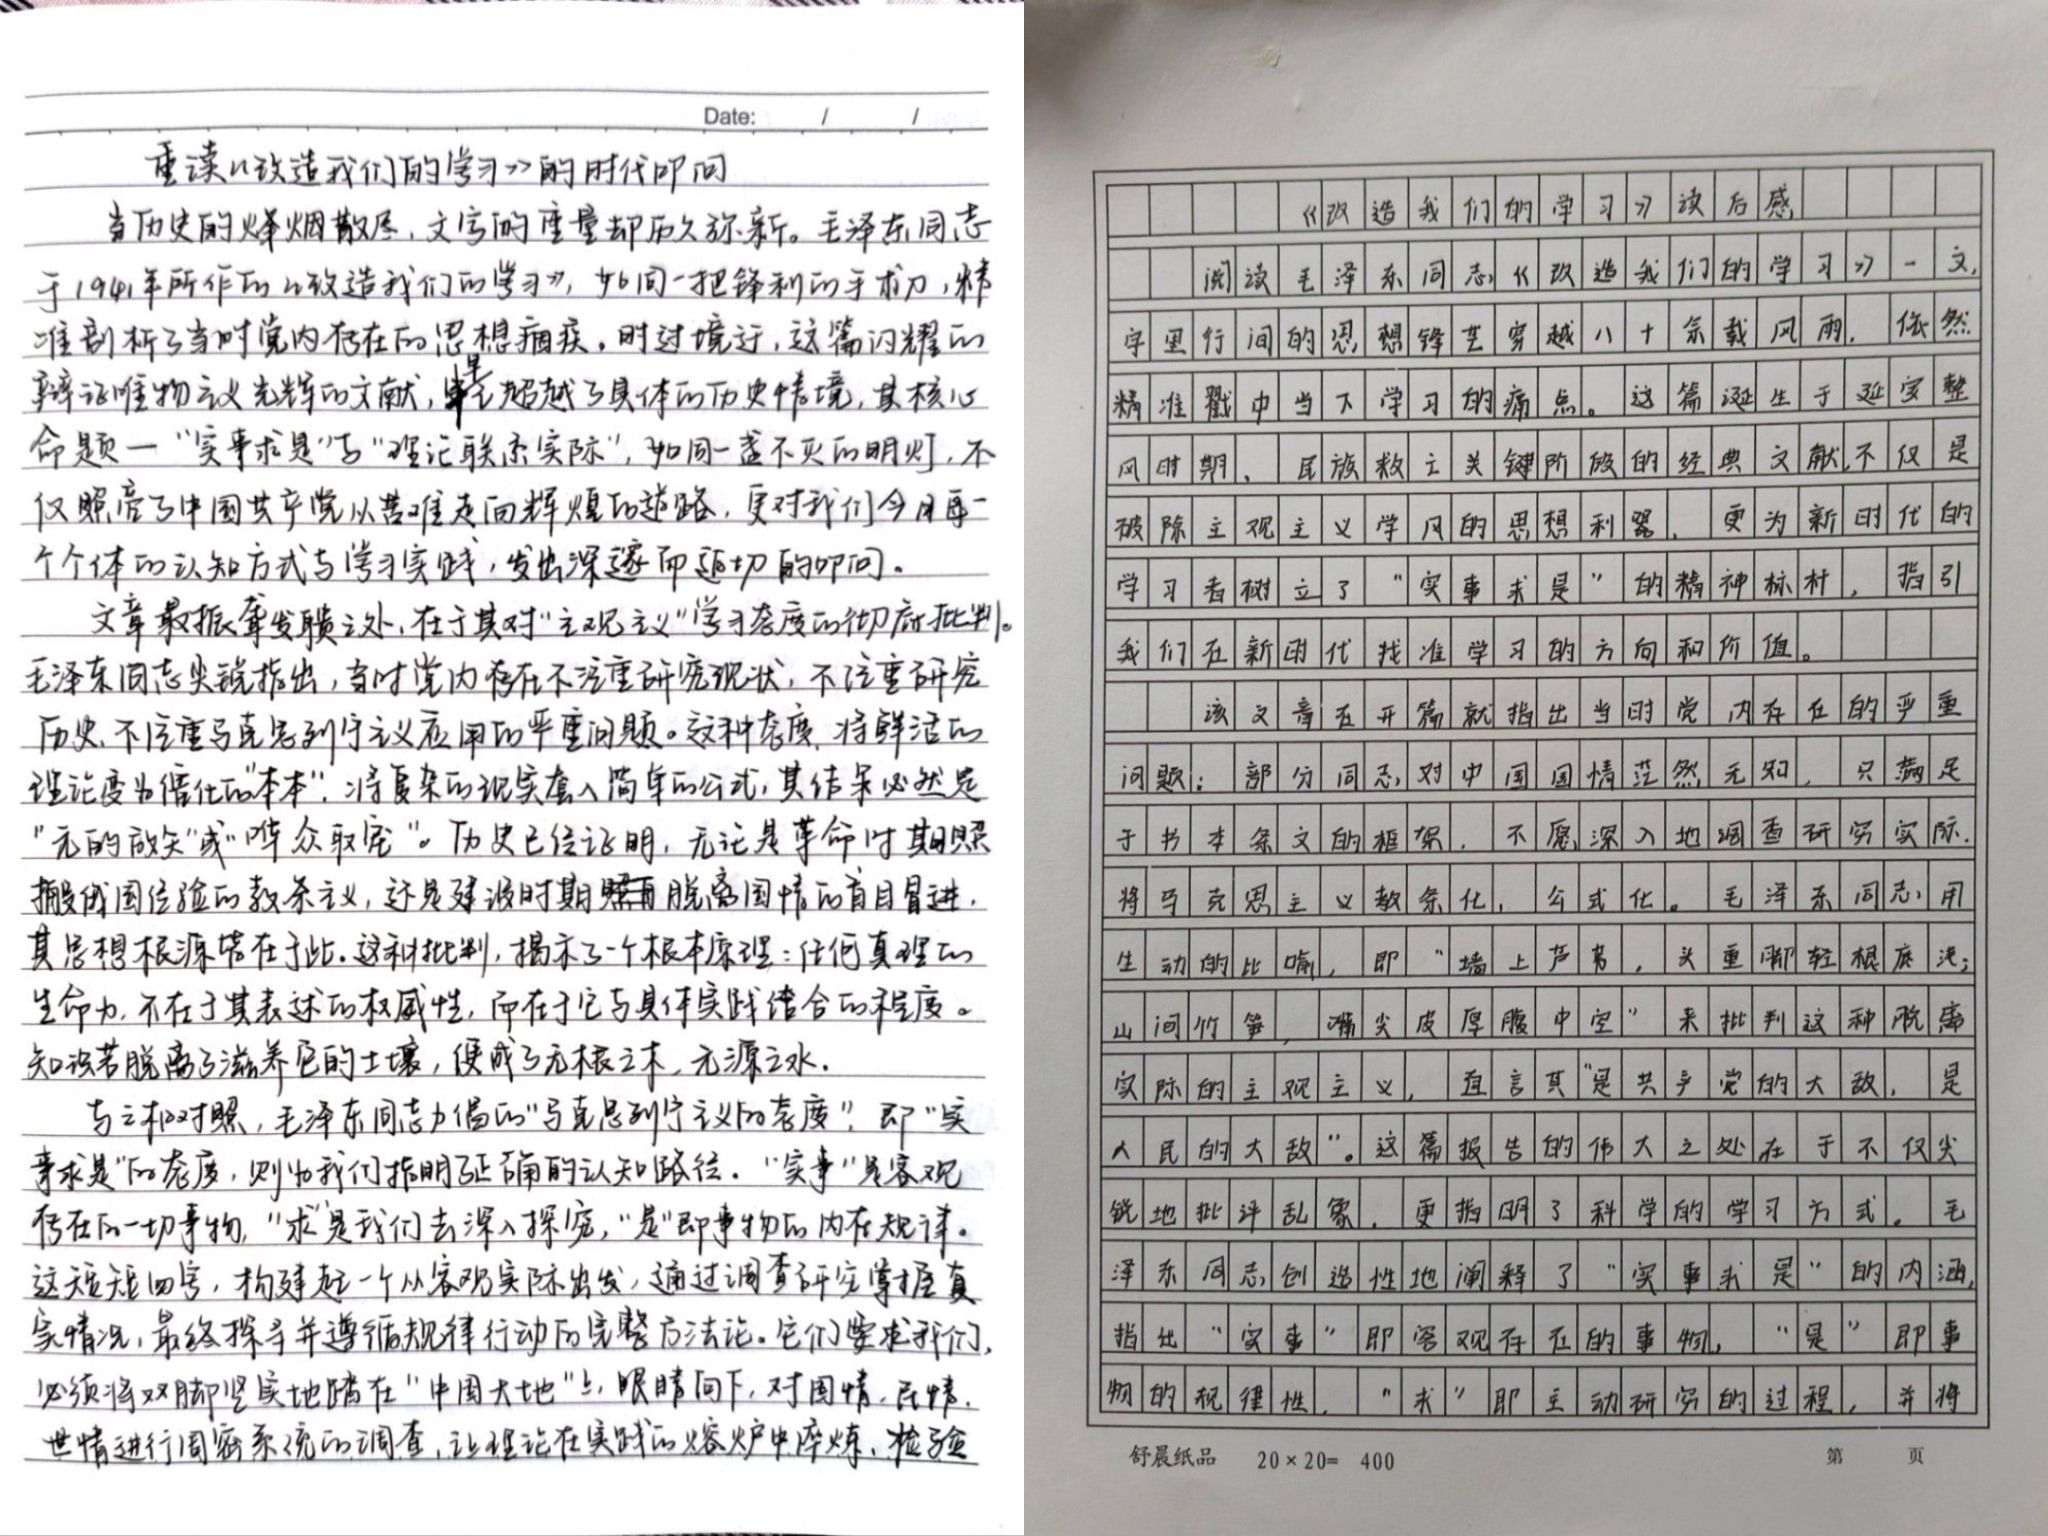 Date: / /
重读《改造我们的学习》的时代叩问
当历史的烽烟散尽，文字的重量却历久弥新。毛泽东同志
于1941年所作的《改造我们的学习》，如同一把锋利的手术刀，精
准剖析了当时党内存在的思想痼疾。时过境迁，这篇闪耀的
辩证唯物主义光辉的文献，早已超越了具体的历史情境，其核心
命题—“实事求是”与“理论联系实际”，如同一盏不灭的明灯，不
仅照亮了中国共产党从苦难走向辉煌的道路，更对我们今日每一
个个体的认知方式与学习实践，发出深邃而迫切的叩问。
文章最振聋发聩之处，在于其对“主观主义”学习态度的彻底批判。
毛泽东同志尖锐指出，当时党内存在不注重研究现状，不注重研究
历史，不注重马克思列宁主义应用的严重问题。这种态度，将鲜活的
理论变为僵化的“本本”，将复杂的现实套入简单的公式，其结果必然是
“无的放矢”或“哗众取宠”。历史已经证明，无论是革命时期照
搬俄国经验的教条主义，还是建设时期脱离国情的盲目冒进，
其思想根源皆在于此。这种批判，揭示了一个根本原理：任何真理的
生命力，不在于其表述的权威性，而在于它与具体实践结合的程度。
知识若脱离了滋养它的土壤，便成了无根之木，无源之水。
与之相对照，毛泽东同志力倡的“马克思列宁主义的态度”，即“实
事求是”的态度，则为我们指明了正确的认知路径。“实事”是客观
存在的一切事物，“求”是我们去深入探究，“是”即事物的内在规律。
这短短四字，构建起一个从客观实际出发，通过调查研究掌握真
实情况，最终探寻并遵循规律行动的完整方法论。它们要求我们，
必须将双脚坚实地踏在“中国大地”上，眼睛向下，对国情，民情，
世情进行周密系统的调查，让理论在实践的熔炉中淬炼、检验
《改造我们的学习》读后感
阅读毛泽东同志《改造我们的学习》一文，
字里行间的思想锋芒穿越八十余载风雨，依然
精准戳中当下学习的痛点。这篇诞生于延安整
风时期，民族救亡关键阶段的经典文献，不仅是
破除主观主义学风的思想利器，更为新时代的
学习者树立了“实事求是”的精神标杆，指引
我们在新时代找准学习的方向和价值。
该文章在开篇就指出当时党内存在的严重
问题：部分同志对中国国情茫然无知，只满足
于书本条文的框架，不愿深入地调查研究实际，
将马克思主义教条化，公式化。毛泽东同志用
生动的比喻，即“墙上芦苇，头重脚轻根底浅；
山间竹笋，嘴尖皮厚腹中空”来批判这种脱离
实际的主观主义，直言其“是共产党的大敌，是
人民的大敌”。这篇报告的伟大之处在于不仅尖
锐地批评乱象，更指明了科学的学习方式。毛
泽东同志创造性地阐释了“实事求是”的内涵，
指出“实事”即客观存在的事物，“是”即事
物的规律性，“求”即主动研究的过程，并将
舒晨纸品 20×20= 400 第 页